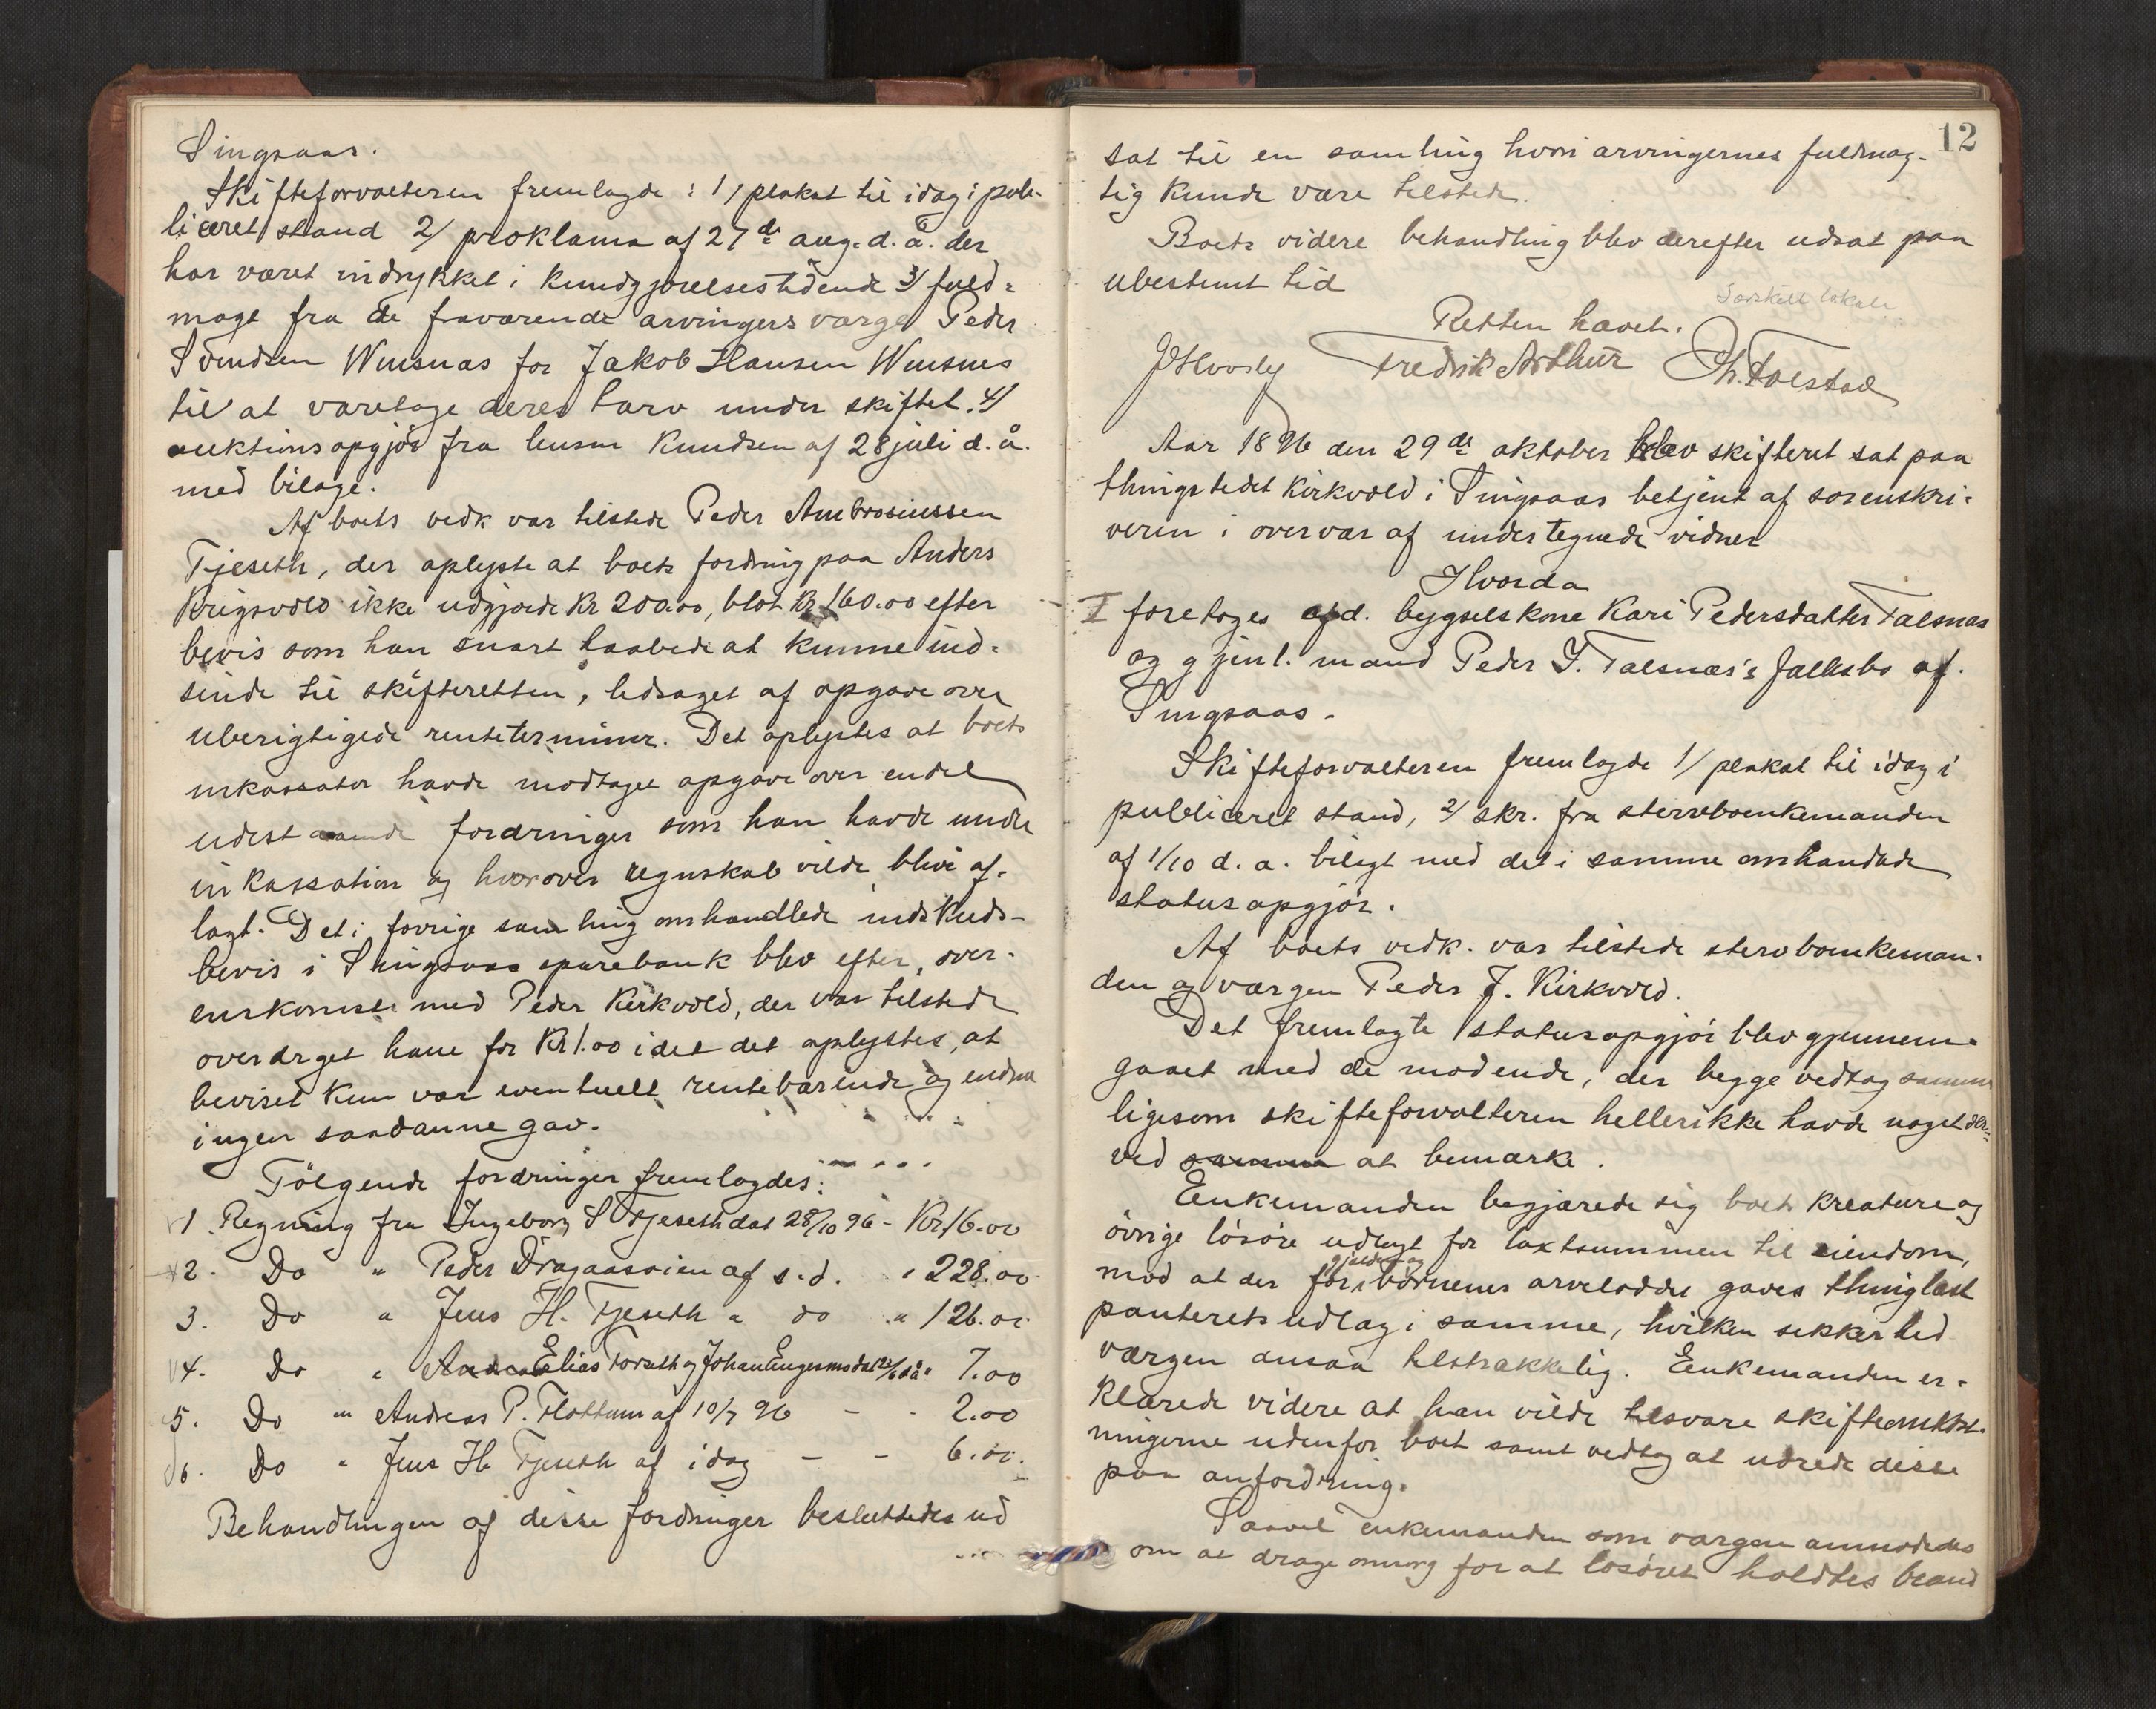 Singsaas.
Skifteforvalteren fremlagde: 1/ plakat til idag i pub-
liceret stand 2/ proklama af 27de aug. d. å. der
har været indrykket i Kundgjørelsestidende 3/ fuld-
magt fra de fraværende arvingers værge Peder
Svendsen Winsnæs for Jakob Hansen Winsnes
til at varetage deres tarv under skiftet. 4/
auktionsopgjør fra lensm Knudsen af 28 juli d. å.
med bilage.
Af boets vedk var tilstede Peder Ambrosiussen
Fjeseth, der oplyste at boets fordring paa Anders
Krigsvold ikke udgjorde Kr 200.00, blot Kr 160.00 efter
bevis som han snart haabede at kunne ind-
sende til skifteretten, ledsaget af opgave over
uberigtigede renteterminer. Det oplystes at boets
inkassator havde modtaget opgave over endel
udestaaende fordringer som han havde under
inkassation og hvorover regnskab vilde blive af-
lagt. Det i forrige samling omhandlede indskuds-
bevis i Singsaas sparebank blev efter over-
enskomst med Peder Kirkvold, der var tilstede
overdraget ham for Kr 1.00 idet det oplystes, at
beviset kun var eventuelt rentebærende og endnu
ingen saadanne gav.
Følgende fordringer fremlagdes:
1. Regning fra Ingeborg S Fjeseth dat 28/10 96 - Kr 16.00
2. Do " Peder Dragaasøien af s. d. " 228.00
3. Do " Jens H. Fjeseth " do " 126.00
4. Do " Elias Forseth og Johan Engen 7.00
5. Do " Andreas P. Flottum af 10/7 96 - - 2.00
6. Do " Jens H. Fjeseth af idag - - 6.00.
Behandlingen af disse fordringer besluttedes ud
12
sat til en samling hvori arvingernes fuldmæg-
tig kunde være tilstede.
Boets videre behandling blev derefter udsat paa
ubestemt tid
Særskilt lokale
Retten hævet.
Fredrik Arthur Th. Folstad
Aar 1896 den 29de oktober blev skifteret sat paa
thingstedet Kirkvold i Singsaas betjent af sorenskri-
veren i overvær af undertegnede vidner
Hvorda
I foretoges afd. bygselskone Kari Pedersdatter Talsnæs
og gjenl. mand Peder J. Talsnæs's fællesbo af
Singsaas.
Skifteforvalteren fremlagde 1/ plakat til idag i
publiceret stand, 2/ skr. fra stervboenkemanden
af 1/10 d. a. bilagt med det i samme omhandlede
statusopgjør.
Af boets vedk. var tilstede stervboenkeman-
den og værgen Peder J. Kirkvold.
Det fremlagte statusopgjør blev gjennem-
gaaet med de mødende, der begge vedtog samme
ligesom skifteforvalteren heller ikke havde noget der-
ved samme at bemærke.
Enkemanden begjærede sig boets kreature og
øvrige løsøre udlagt for taxtsummen til eiendom,
mod at der for gjælden og børnenes arvelodder gaves thinglæst
panteretsudlæg i samme, hvilken sikkerhed
værgen ansaa tilstrækkelig. Enkemanden er-
klærede videre at han vilde tilsvare skifteomkost-
ningerne udenfor boet samt vedtog at udrede disse
paa anfordring.
Saavel enkemanden som værgen anmodedes
om at drage omsorg for at løsøret holdtes brand